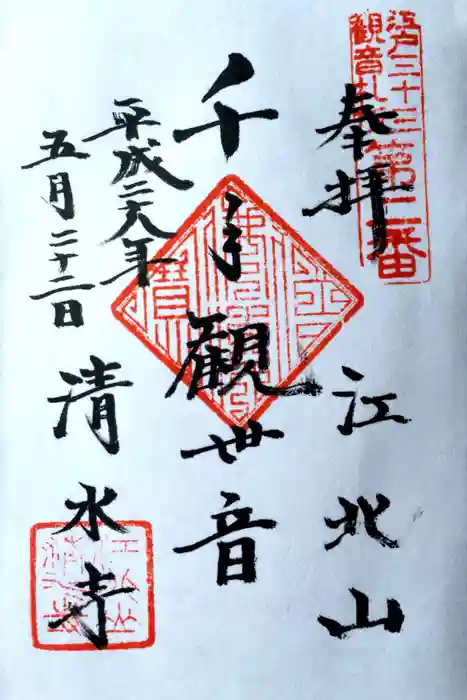 江戸三十三
観音札所第二番
奉拝
江北山
千手観世音
平成二十八年
五月二十二日
清水寺